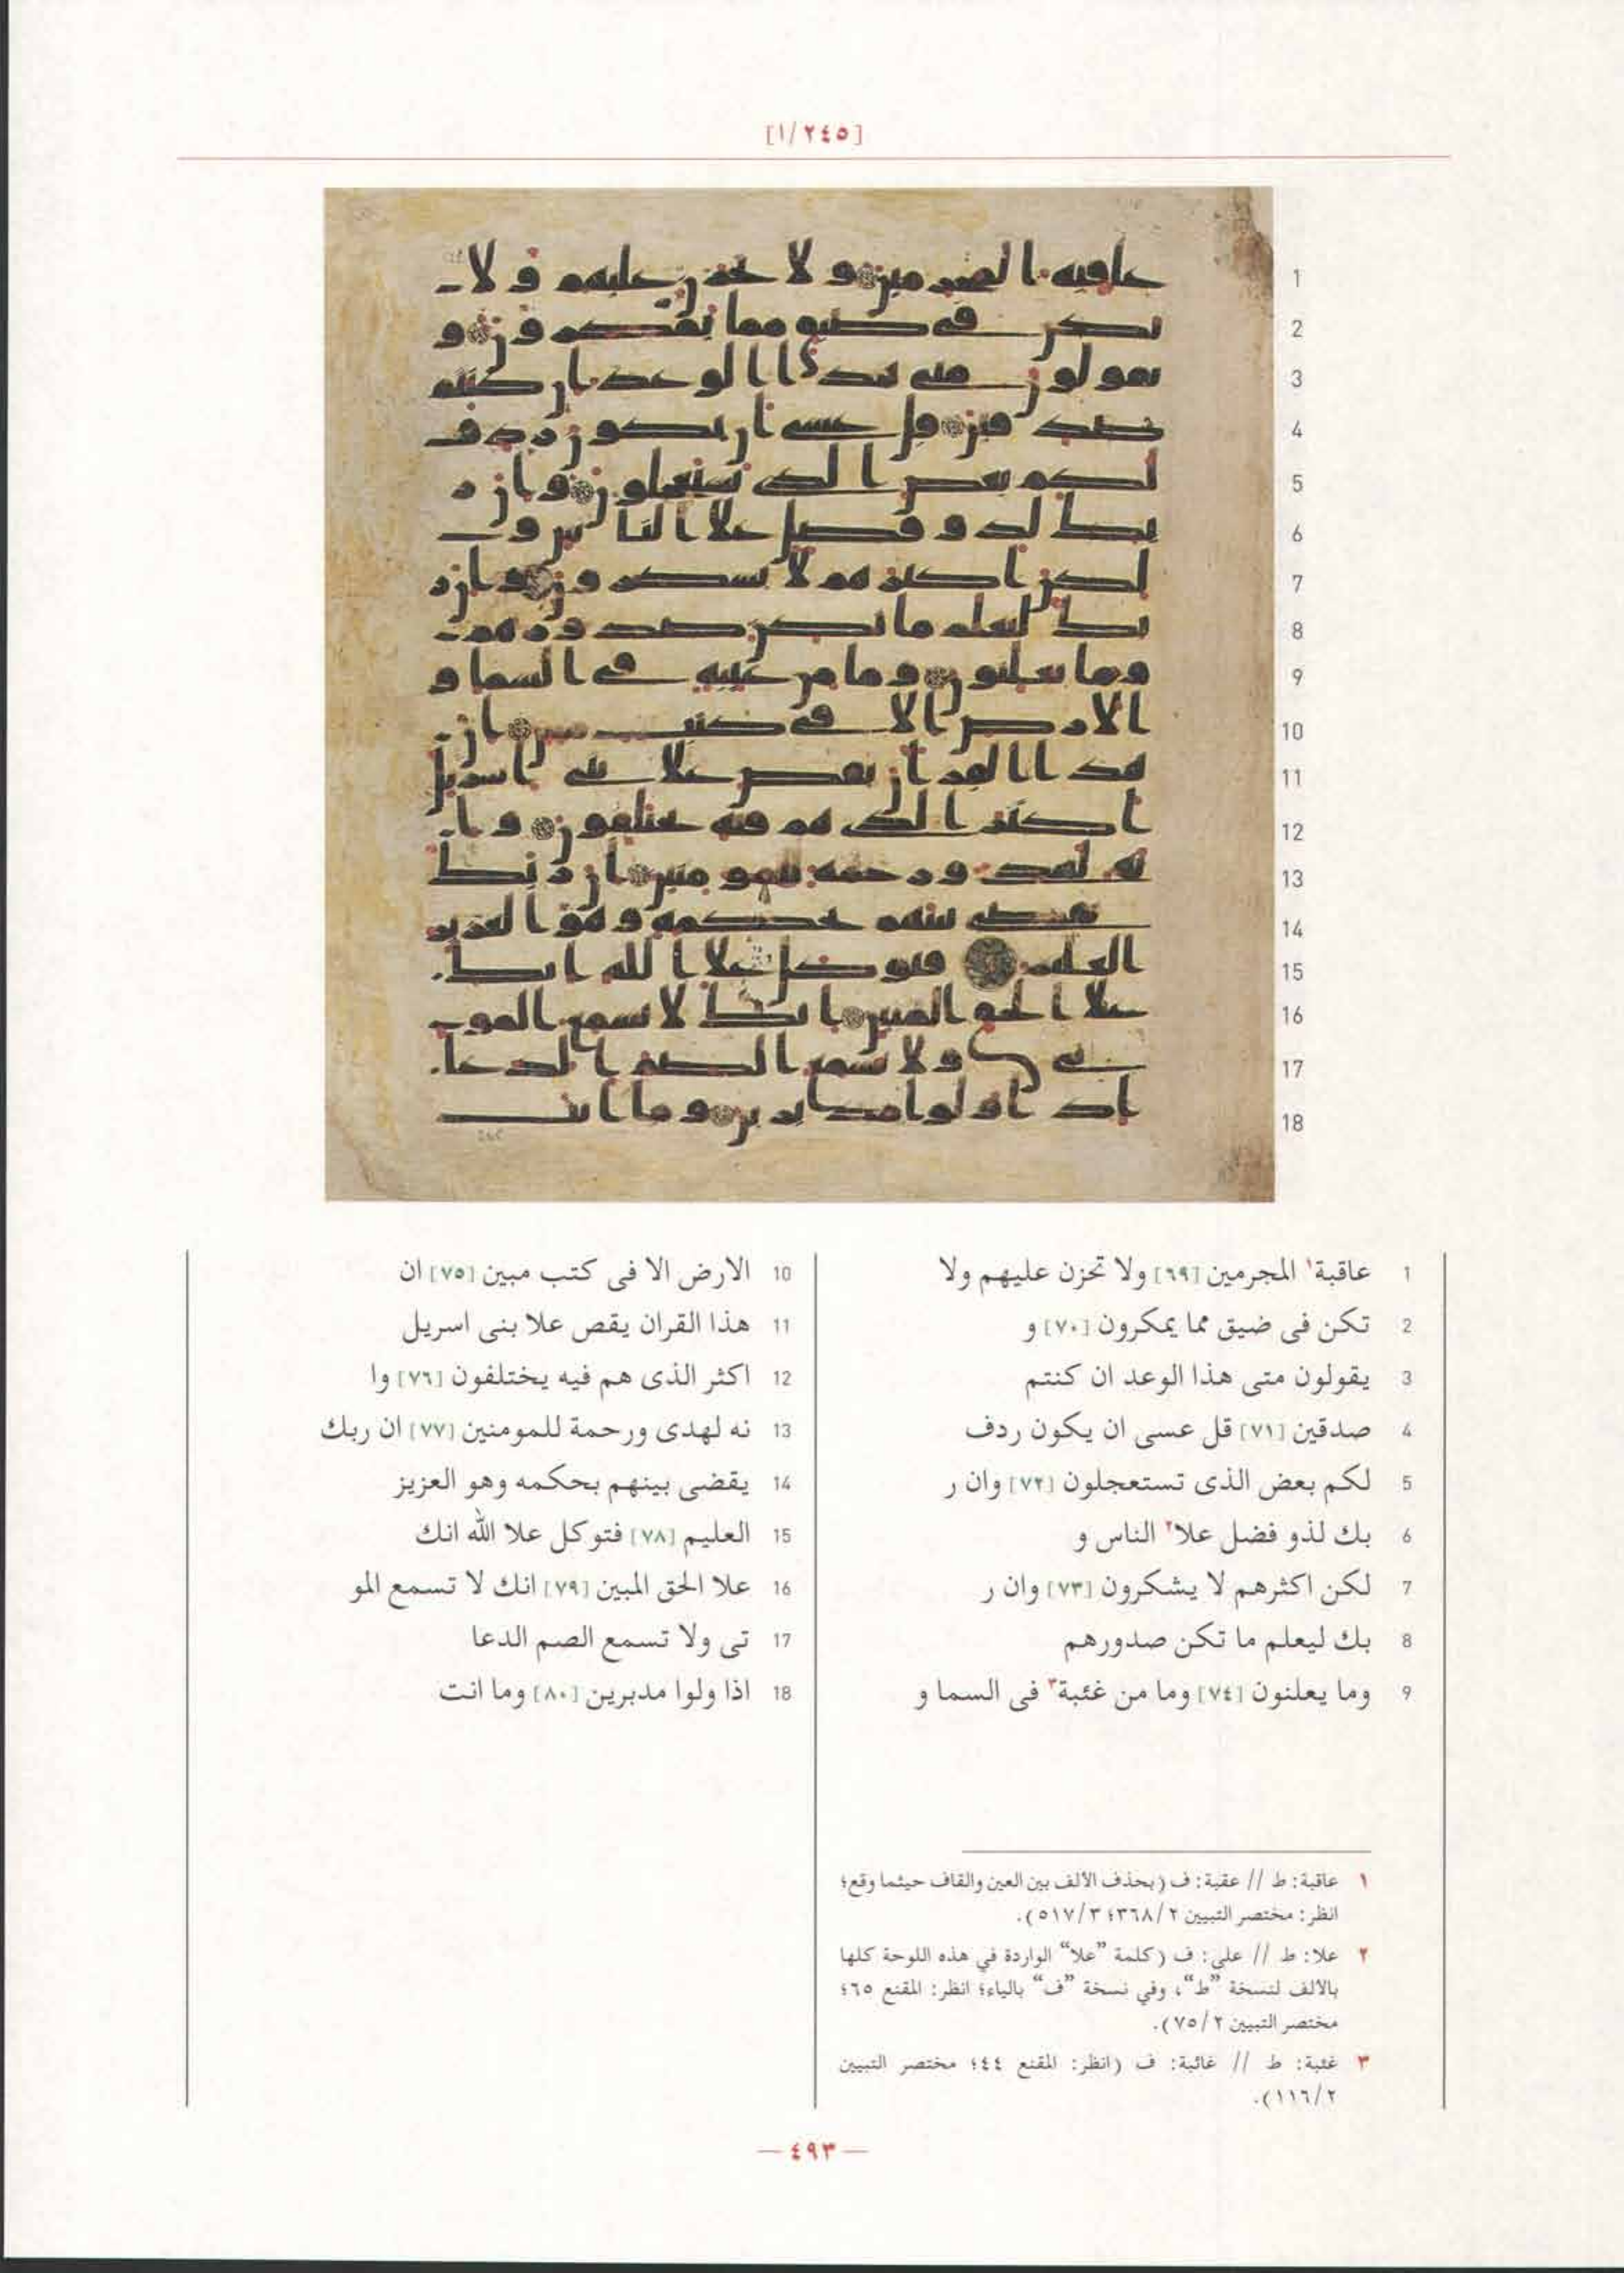 [١/٢٤٥]
1 عاقبة١ المجرمين [٦٩] ولا تحزن عليهم ولا
2 تكن فى ضيق مما يمكرون [٧٠] و
3 يقولون متى هذا الوعد ان كنتم
4 صدقين [٧١] قل عسى ان يكون ردف
5 لكم بعض الذى تستعجلون [٧٢] وان ر
6 بك لذو فضل علا٢ الناس و
7 لكن اكثرهم لا يشكرون [٧٣] وان ر
8 بك ليعلم ما تكن صدورهم
9 وما يعلنون [٧٤] وما من غئبة٣ فى السما و
10 الارض الا فى كتب مبين [٧٥] ان
11 هذا القران يقص علا بنى اسريل
12 اكثر الذى هم فيه يختلفون [٧٦] وا
13 نه لهدى ورحمة للمومنين [٧٧] ان ربك
14 يقضى بينهم بحكمه وهو العزيز
15 العليم [٧٨] فتوكل علا الله انك
16 علا الحق المبين [٧٩] انك لا تسمع المو
17 تى ولا تسمع الصم الدعا
18 اذا ولوا مدبرين [٨٠] وما انت
١ عاقبة: ط // عقبة: ف (بحذف الألف بين العين والقاف حيثما وقع؛
انظر: مختصر التبيين ٣٦٨/٢؛ ٥١٧/٣).
٢ علا: ط // على: ف (كلمة “علا” الواردة في هذه اللوحة كلها
بالالف لنسخة “ط”، وفي نسخة “ف” بالياء؛ انظر: المقنع ٦٥؛
مختصر التبيين ٧٥/٢).
٣ غئبة: ط // غائبة: ف (انظر: المقنع ٤٤؛ مختصر التبيين
١١٦/٢).
— ٤٩٣ —